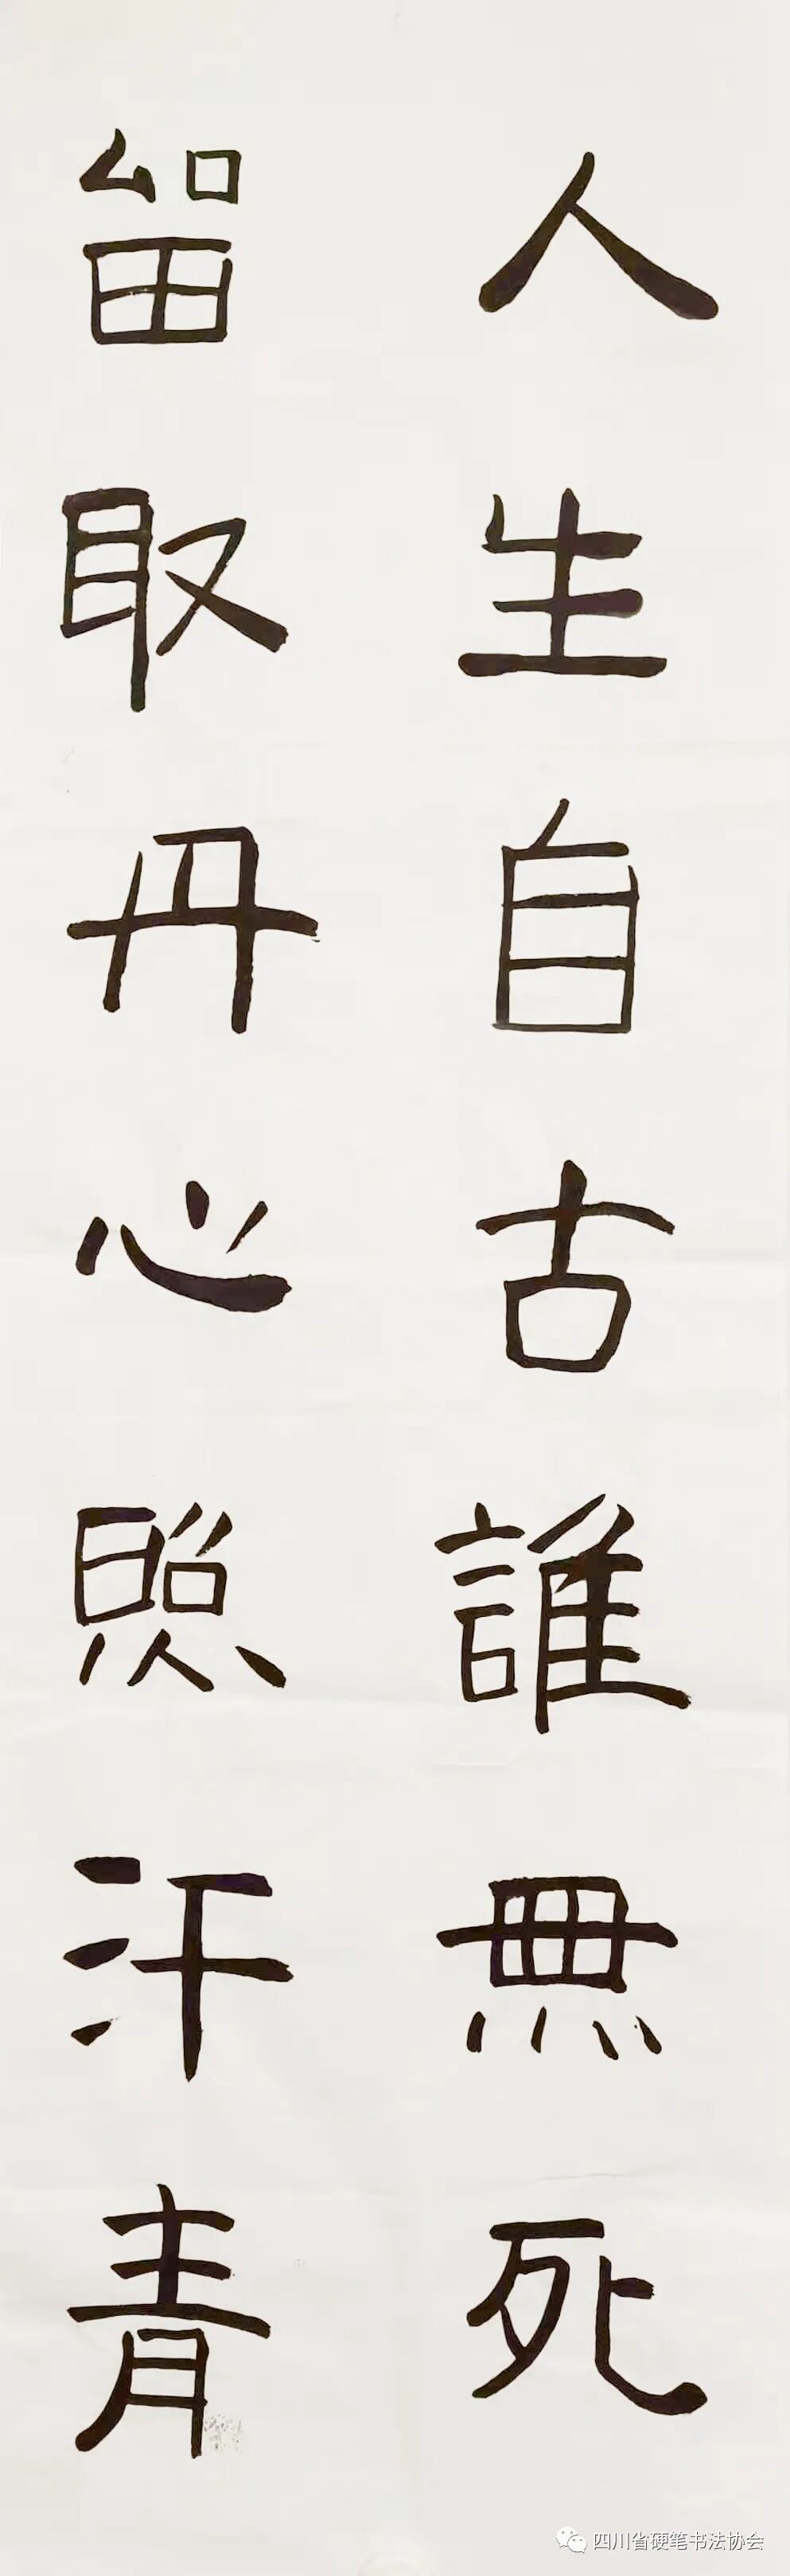 人生自古誰無死
留取丹心照汗青
四川省硬笔书法协会